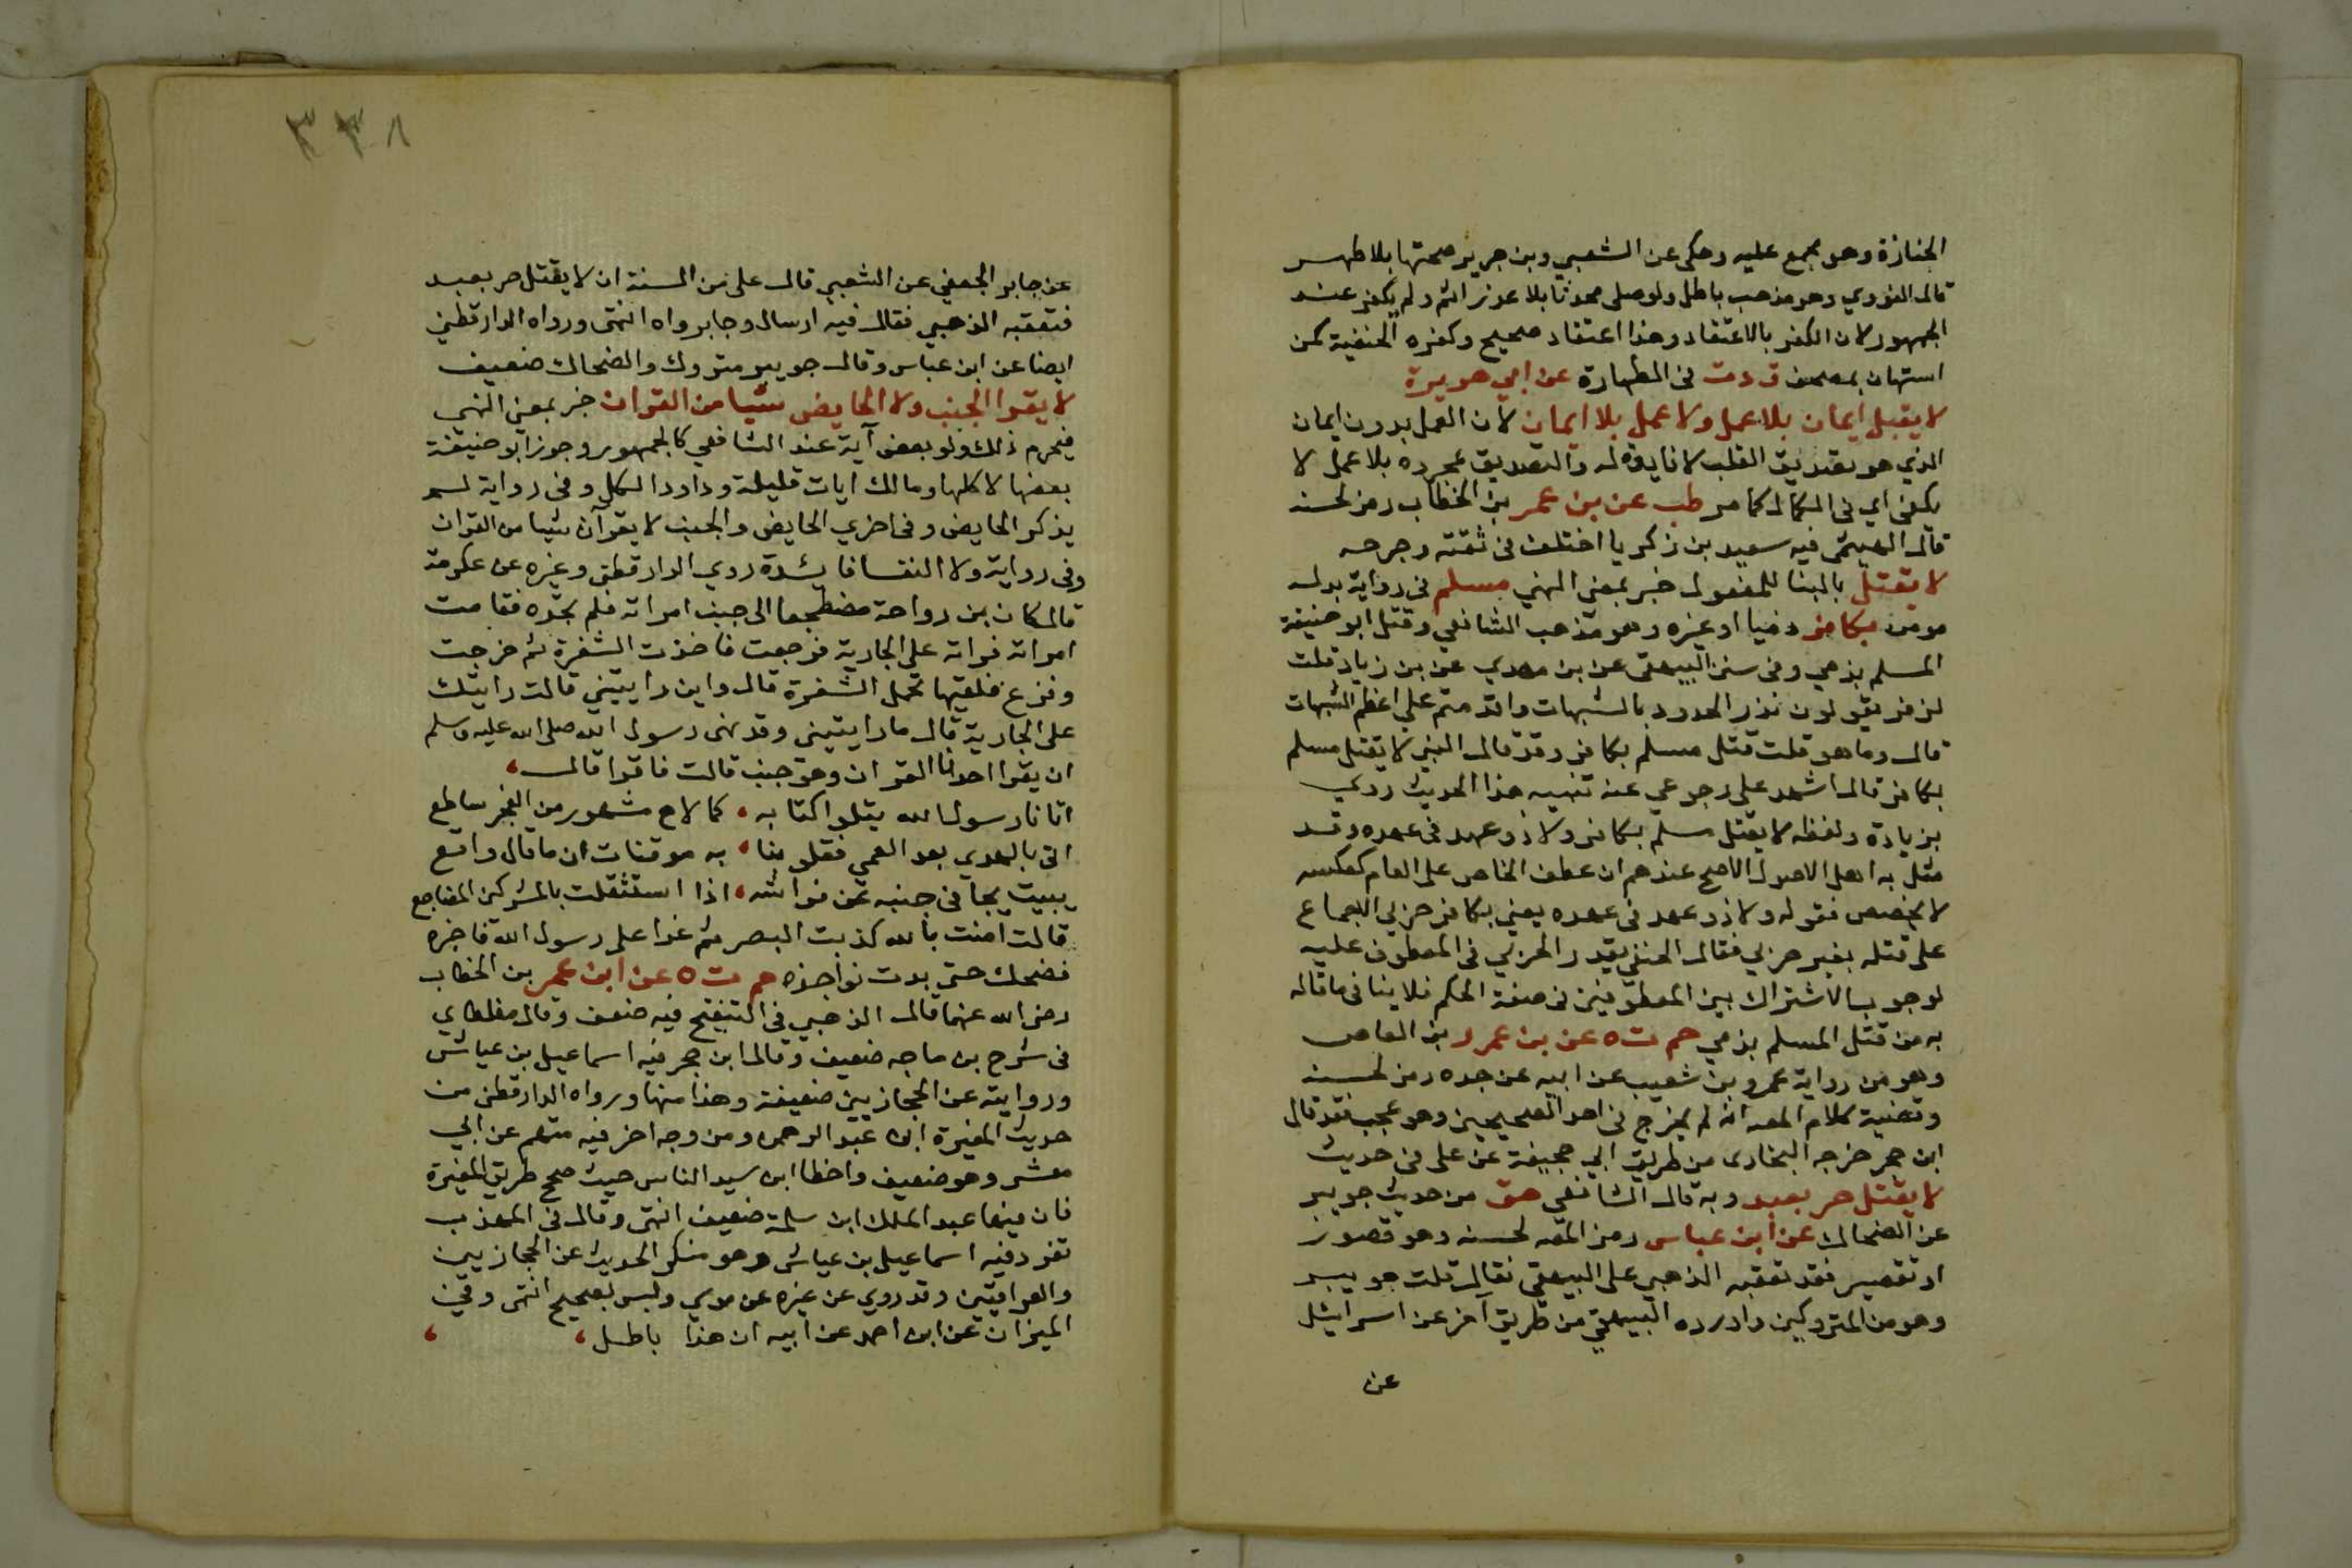 الجنازة وهو مجمع عليه وحكى عن الشعبي وبن جرير صحتها بلا طهر
قال النووي وهو مذهب باطل ولو صلى محدثا بلا عذر اثم ولم يكفر عند
الجمهور لان الكفر بالاعتقاد وهذا اعتقاد صحيح وكفره الحنفية كمن
استهان بمصحف ق د ت في الطهارة عن ابي هريرة
لا يقبل ايمان بلا عمل ولا عمل بلا ايمان لان العمل بدون ايمان
الذي هو تصديق القلب لا فايدة له والتصديق بمجرده بلا عمل لا
يكفي اي في الكمال كما مر طب عن بن عمر بن الخطاب رمز لحسنه
قال الهيثمي فيه سعيد بن زكريا اختلف في ثقته وجرحه
لا يقتل بالبنا للمفعول خبر بمعنى النهي مسلم في رواية بدله
مومن بكافر ذميا او غيره وهو مذهب الشافعي وقتل ابو حنيفة
المسلم بذمي وفي سنن البيهقي عن بن مهدي عن بن زياد قلت
لزفر يقولون ندر الحدود بالشبهات واقدمتم على اعظم الشبهات
قال وما هو قلت قتل مسلم بكافر وقد قال النبي لا يقتل مسلم
بكافر قال اشهد على رجوعي عنه تنبيه هذا الحديث روي
بزيادة ولفظه لا يقتل مسلم بكافر ولا ذو عهد في عهده وقد
مثل به اهل الاصول الاصح عندهم ان عطف الخاص على العام كعكسه
لا يخصص فقوله ولا ذو عهد في عهده يعني بكافر حربي للاجماع
على قتله بغير حربي فقال الحنفي يقدر الحربي في المعطوف عليه
لوجوب الاشتراك بين المعطوفين في صفة الحكم فلا ينافي ما قاله
به من قتل المسلم بذمي حم ت ه عن بن عمرو بن العاص
وهو من رواية عمرو بن شعيب عن ابيه عن جده رمز لحسنه
وقضية كلام المصه انه لم يخرج في احد الصحيحين وهو عجب فقد قال
ابن حجر خرجه البخاري من طريق ابي جحيفة عن علي في حديث
لا يقتل حر بعبد وبه قال الشافعي هق من حديث جويبر
عن الضحاك عن ابن عباس رمز المصه لحسنه وهو قصور
او تقصير فقد تعقبه الذهبي على البيهقي فقال قلت جويبر
وهو من المتروكين واورده البيهقي من طريق اخر عن اسرائيل
عن
٣٣٨
عن جابر الجعفي عن الشعبي قال علي من السنة ان لا يقتل حر بعبد
فتعقبه الذهبي فقال فيه ارسال وجابر واه انتهى ورواه الدارقطني
ايضا عن ابن عباس وقال جويبر متروك والضحاك ضعيف
لا يقرا الجنب ولا الحايض شيا من القران خبر بمعنى النهي
فيحرم ذلك ولو بعض آية عند الشافعي كالجمهور وجوز ابو حنيفة
بعضها لا كلها ومالك ايات قليلة وداود الكل وفي رواية لم
يذكر الحايض وفي اخري الحايض والجنب لا يقرآن شيا من القران
وفي رواية ولا النفسا فايدة روي الدارقطني وغيره عن عكرمة
قال كان بن رواحة مضطجعا الى جنب امراته فلم تجده فقامت
امراته فراته على الجارية فرجعت فاخذت الشفرة ثم خرجت
وفزع فلقيها تحمل الشفرة قال واين رايتيني قالت رايتك
على الجارية قال ما رايتيني وقد نهى رسول الله صلى الله عليه وسلم
ان يقرا احدنا القران وهو جنب قالت فاقرا قال
اتانا رسول الله يتلو اكتابه، كما لاح مشهور من الفجر ساطع
اتى بالهدي بعد العمي فقلوبنا، به موقنات ان ما قال واقع
يبيت يجافي جنبه عن فراشه، اذا استثقلت بالمشركين المضاجع
قالت امنت بالله كذبت البصر ثم غدا على رسول الله فاخبره
فضحك حتى بدت نواجذه حم ت ه عن ابن عمر بن الخطاب
رضى الله عنهما قال الذهبي في التنقيح فيه ضعف وقال مغلطاي
في شرح بن ماجه ضعيف وقال ابن حجر فيه اسماعيل بن عياش
وروايته عن الحجازيين ضعيفة وهذا منها ورواه الدارقطني من
حديث المغيرة ابن عبد الرحمن ومن وجه اخر فيه متهم عن ابي
معشر وهو ضعيف واخطا ابن سيد الناس حيث صحح طريق المغيرة
فان فيها عبد الملك ابن سلمة ضعيف انتهى وقال في المهذب
تفرد فيه اسماعيل بن عياش وهو منكر الحديث عن الحجازيين
والعراقيين وقد روي عن غيره عن موسي وليس بصحيح انتهى وفي
الميزان عن ابن احمد عن ابيه ان هذا باطل،